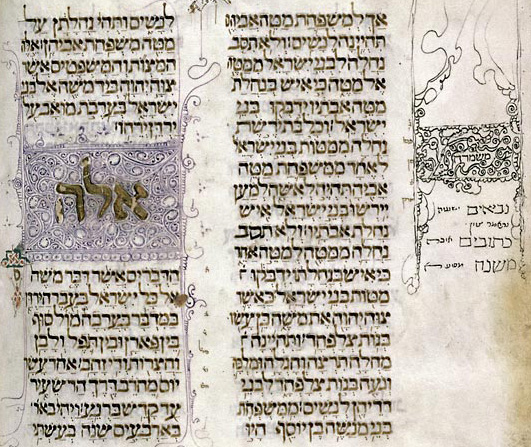 אך למשפחת מטה אביהם
תהיין לנשים ולא תסב
נחלה לבני ישראל ממטה
אל מטה כי איש בנחלת
מטה אבתיו ידבקו בני
ישראל וכל בת ירשת
נחלה ממטות בני ישראל
לאחד ממשפחת מטה
אביה תהיה לאשה למען
יירשו בני ישראל איש
נחלת אבתיו ולא תסב
נחלה ממטה למטה אחר
כי איש בנחלתו ידבקו
מטות בני ישראל כאשר
צוה יהוה את משה כן עשו
בנות צלפחד ותהיינה
מחלה תרצה וחגלה ומלכה
ונעה בנות צלפחד לבני
דדיהן לנשים ממשפחת
בני מנשה בן יוסף היו
לנשים ותהי נחלתן על
מטה משפחת אביהן אלה
המצות והמשפטים אשר
צוה יהוה ביד משה אל בני
ישראל בערבת מואב על
ירדן ירחו
אלה
הדברים אשר דבר משה
אל כל ישראל בעבר הירדן
במדבר בערבה מול סוף
בין פארן ובין תפל ולבן
וחצרת ודי זהב אחד עשר
יום מחרב דרך הר שעיר
עד קדש ברנע ויהי
בארבעים שנה בעשתי
נביאים
כתובים
משנה